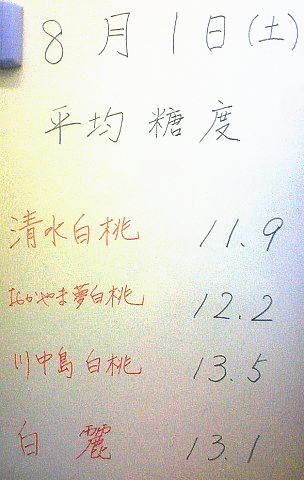 8月1日(土)
平均 糖度
清水白桃 11.9
おかやま夢白桃 12.2
川中島白桃 13.5
白 麗 13.1